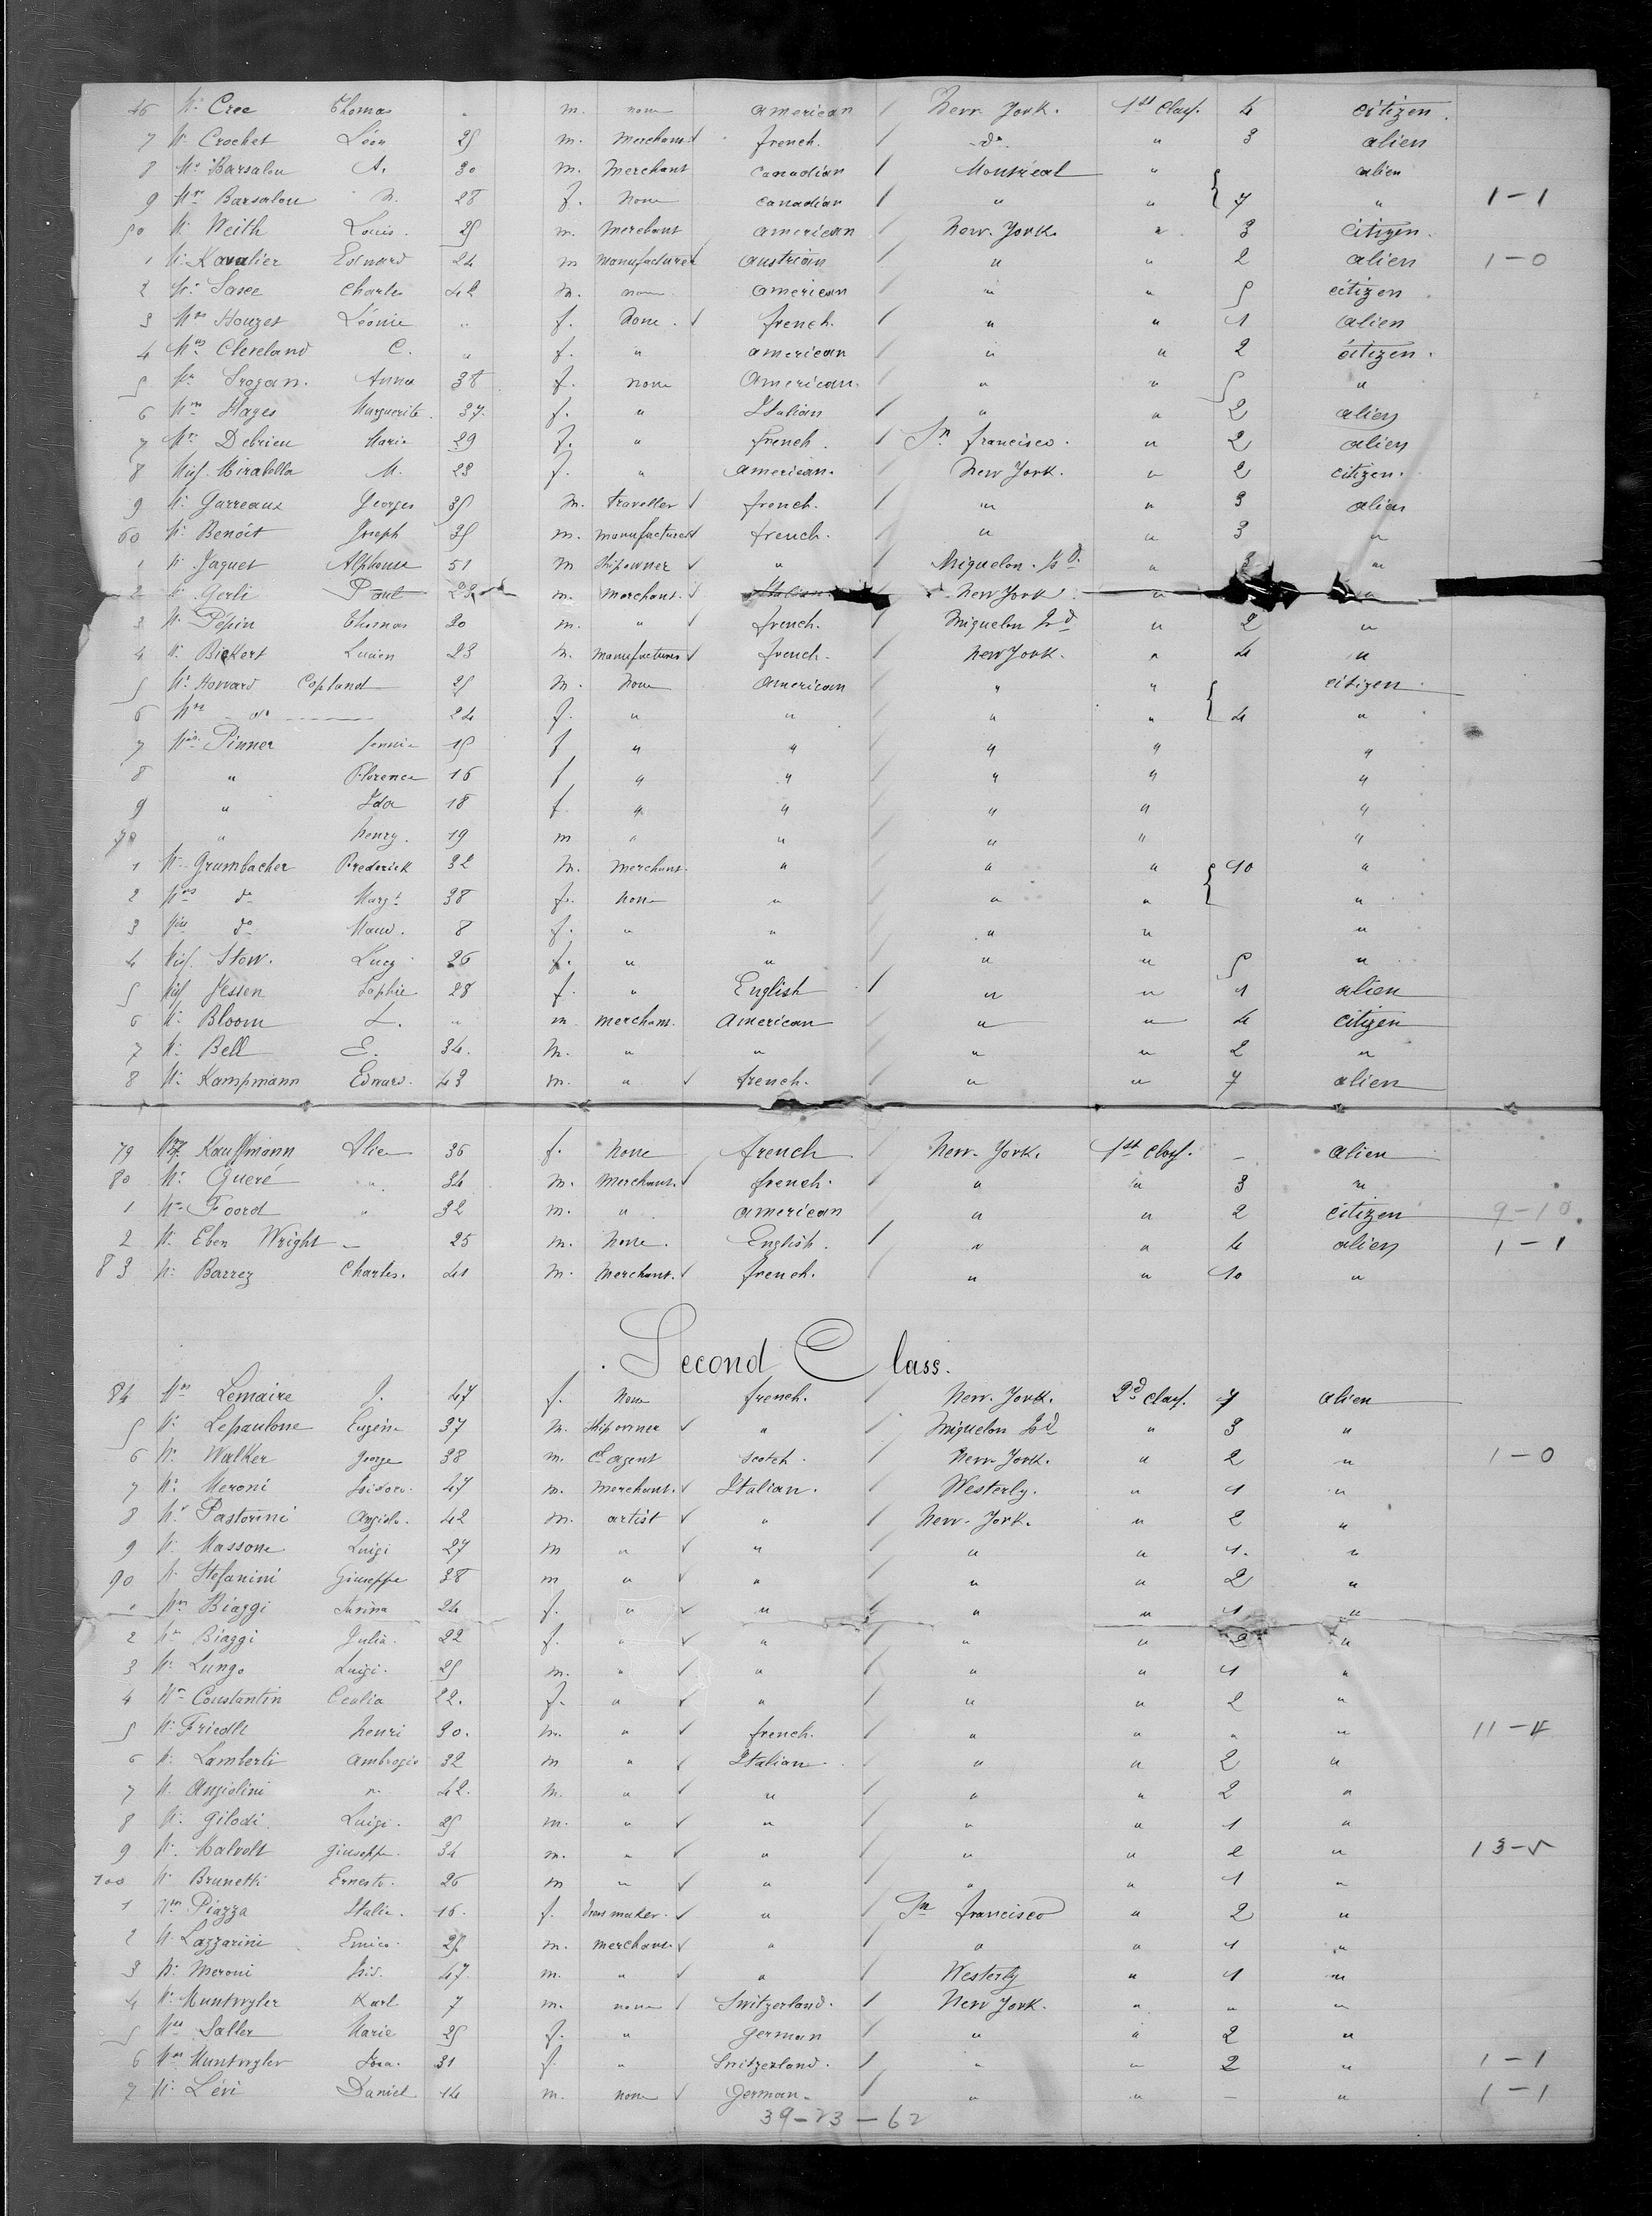 46 Mr Cree Thomas " m. none american / New-York. 1st Class. 4 citizen.
7 Mr Crochet Léon 25 m. Merchant french. / do " 3 alien
8 Mr Barsalou A. 30 m. Merchant canadian / Montréal " alien
9 Mrs Barsalou M. 28 f. None canadian / " " 7 " 1-1
50 Mr Neith Louis. 25 m. Merchant american / New-York. " 3 citizen.
1 Mr Kavalier Edward 24 m manufacturer austrian / " " 2 alien 1-0
2 Mr Sasee Charles 42 m. none american / " " 5 citizen
3 Mrs Houzet Léonie " f. None. french. / " " 1 alien
4 Mrs Cleveland C. " f. " american / " " 2 citizen.
5 Mrs Grogan. Anna 38 f. none American. / " " 5 "
6 Mrs Hayes Marguerite. 37. f. " Italian / " " 2 alien
7 Mrs Debrieu Maria 29 f. " french. / Sn francisco. " 2 alien
8 Miss. Mirabella M. 23 f. " american. New York. " 2 citizen.
9 Mr Garreaux Georges 35 m. traveller french. / " " 3 alien
60 Mr Benoît Joseph 35 m. manufacturer french. / " " 3 "
1 Mr Jaquet Alphonse 51 m Shipowner " / Miquelon. Id " 3 "
2 Mr Gerli Paul 23 m. Merchant. Italian New York " "
3 Mr Pépin Thomas 30 m. " french. / Miquelon Id " 2 "
4 Mr Bickert Lucien 23 m. Manufacturer french. / New York. " 4 "
5 Mr Howard Copland 25 m. None American / " " citizen
6 Mrs do 24 f. " " / " " 4 "
7 Miss Pinner Jennie 15 f " " / " " "
8 " Florence 16 f " " / " " "
9 " Ida 18 f. " " / " " "
70 " henry. 19 m " " / " " "
1 Mr Grumbacher Frederick 32 m. Merchant. " / " " 10 "
2 Mrs do Margt 38 f. None " " " "
3 Miss do Maud. 8 f. " " " " "
4 Miss. Stow. Lucy 26 f. " " " " 5 "
5 Miss Jessen Sophie 28 f. " English / " " 1 alien
6 Mr Bloom L. " m merchant. American " " 4 citizen
7 Mr Bell E. 34. m. " " " " 2 "
8 Mr Kampmann Edward. 43 m. " french. / " " 7 alien
79 Mrs Kauffmann Alice 36 f. None french New-York. 1st Class. - alien
80 Mr Queré " 34 m. Merchant. french. / " " 3 "
1 Mr Foord " 32 m. " american / " " 2 citizen 9-10.
2 Mr Eben Wright - 25 m. None. English. / " " 4 alien 1-1
83 Mr Barrez Charles. 41 m. Merchant. french. / " " 10 "
Second Class.
84 Mrs Lemaire J. 47 f. None french. / New-York. 2d Class. 7 alien
5 Mr Lepaulone Eugène 37 m. Shipowner " / Miquelon Id " 3 "
6 Mr Walker George 38 m. Cl agent scotch. / New-York. " 2 " 1-0
7 Mr Meroni Isidoro. 47 m. Merchant. Italian. / Westerly. " 1 "
8 Mr Pastorini Angiolo. 42 m. artist " / New-York. " 2 "
9 Mr Massone Luigi 27 m " " / " " 1. "
90 Mr Stefanini Giuseppe 38 m " " / " " 2 "
1 Mrs Biaggi 24 f. " " / " " 1 "
2 Mrs Biaggi Julia. 22 f. " " / " " 2 "
3 Mr Lungo Luigi. 25 m. " " / " " 1 "
4 Mrs Constantin Cealia 22. f. " " / " " 2 "
5 Mr Friedli henri 30. m. " french. / " " " " 11-4
6 Mr Lamberti Ambrogio 32 m " Italian / " " 2 "
7 Mr Angiolini " 42. m. " " / " " 2 "
8 Mr Gilodi Luigi. 25 m. " " / " " 1 "
9 Mr Malvolt giuseppe. 34 m. " " / " " 2 " 13-5
100 Mr Brunetti Ernesto. 26 m " " / " " 1 "
1 Mrs Piazza Italia. 16. f. dress maker. " / Sn francisco " 2 "
2 Mr Lazzarini Enrico. 25 m. merchant. " / " " 1 "
3 Mr Meroni Isid. 47 m. " " / Westerly " 1 "
4 Mr Muntwyler Karl 7 m. none Switzerland. / New York. " " "
5 Mrs Saller Marie 25 f. " german / " " 2 "
6 Mrs Muntwyler 31 f. " Switzerland. / " " 2 " 1-1
7 Mr Lévi Daniel 14 m. none german. / " " - " 1-1
39-23-62